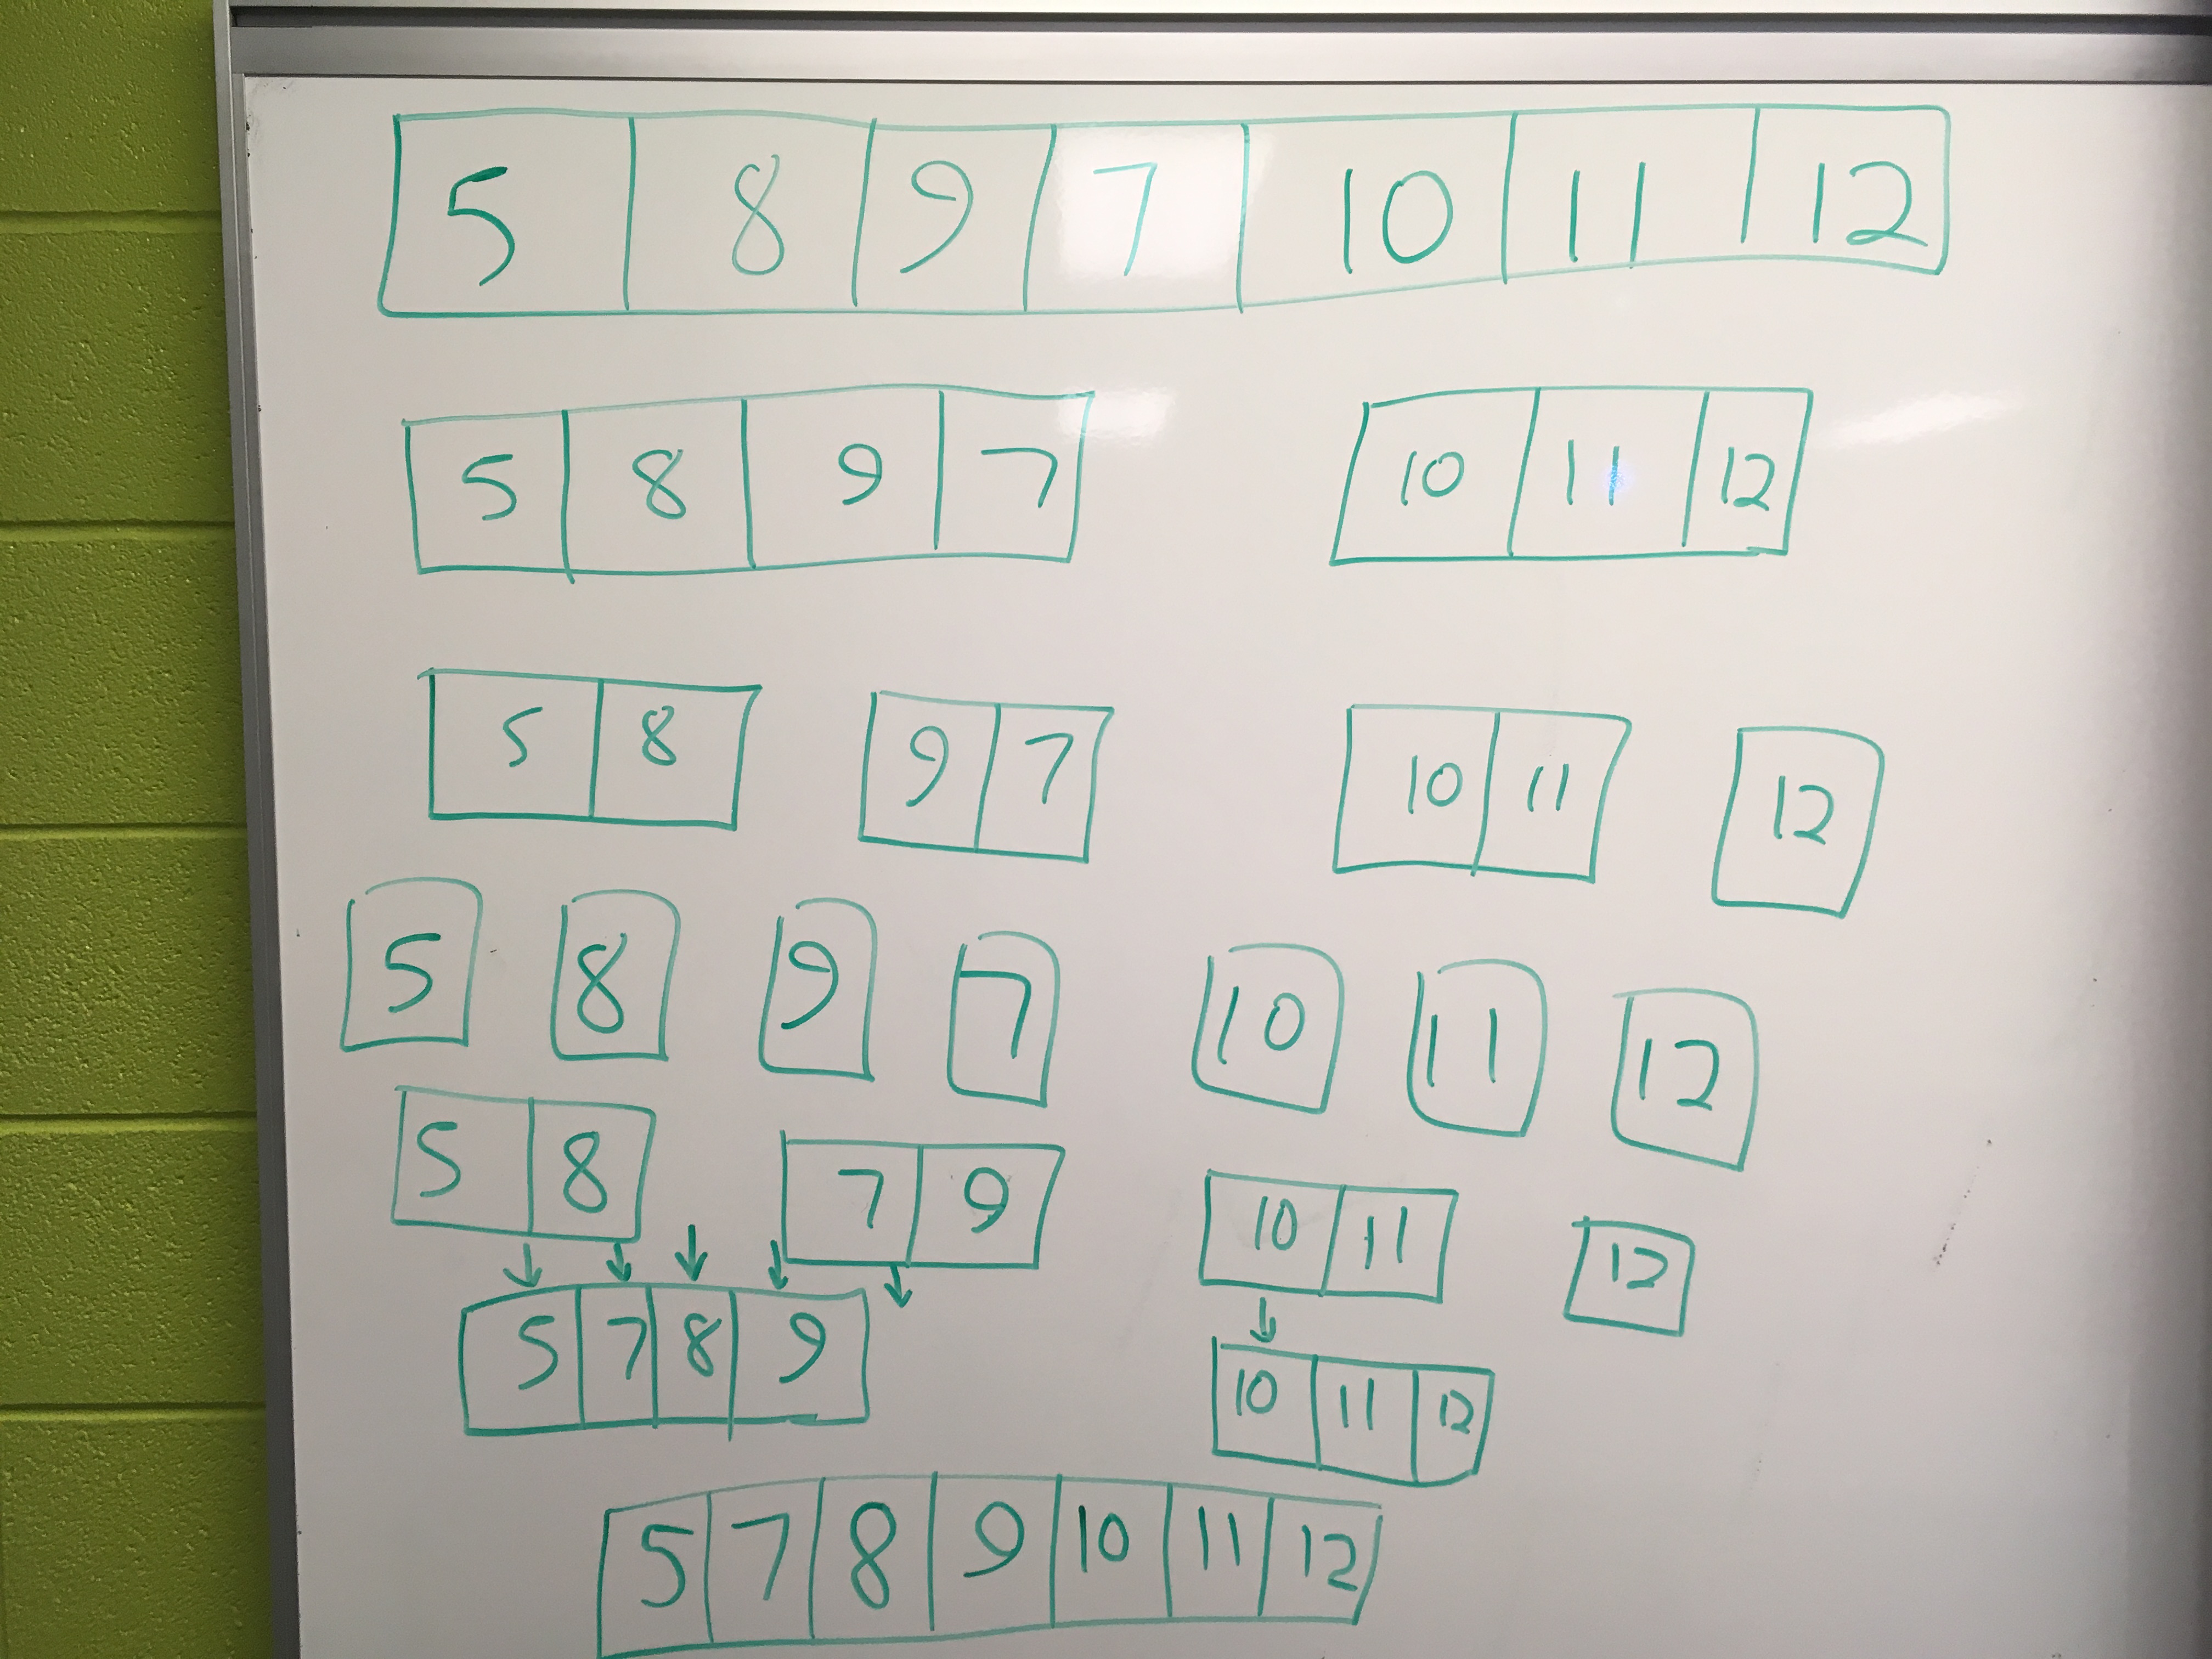 5 8 9 7 10 11 12
5 8 9 7 10 11 12
5 8 9 7 10 11 12
5 8 9 7 10 11 12
5 8 7 9 10 11 12
5 7 8 9 10 11 12
5 7 8 9 10 11 12